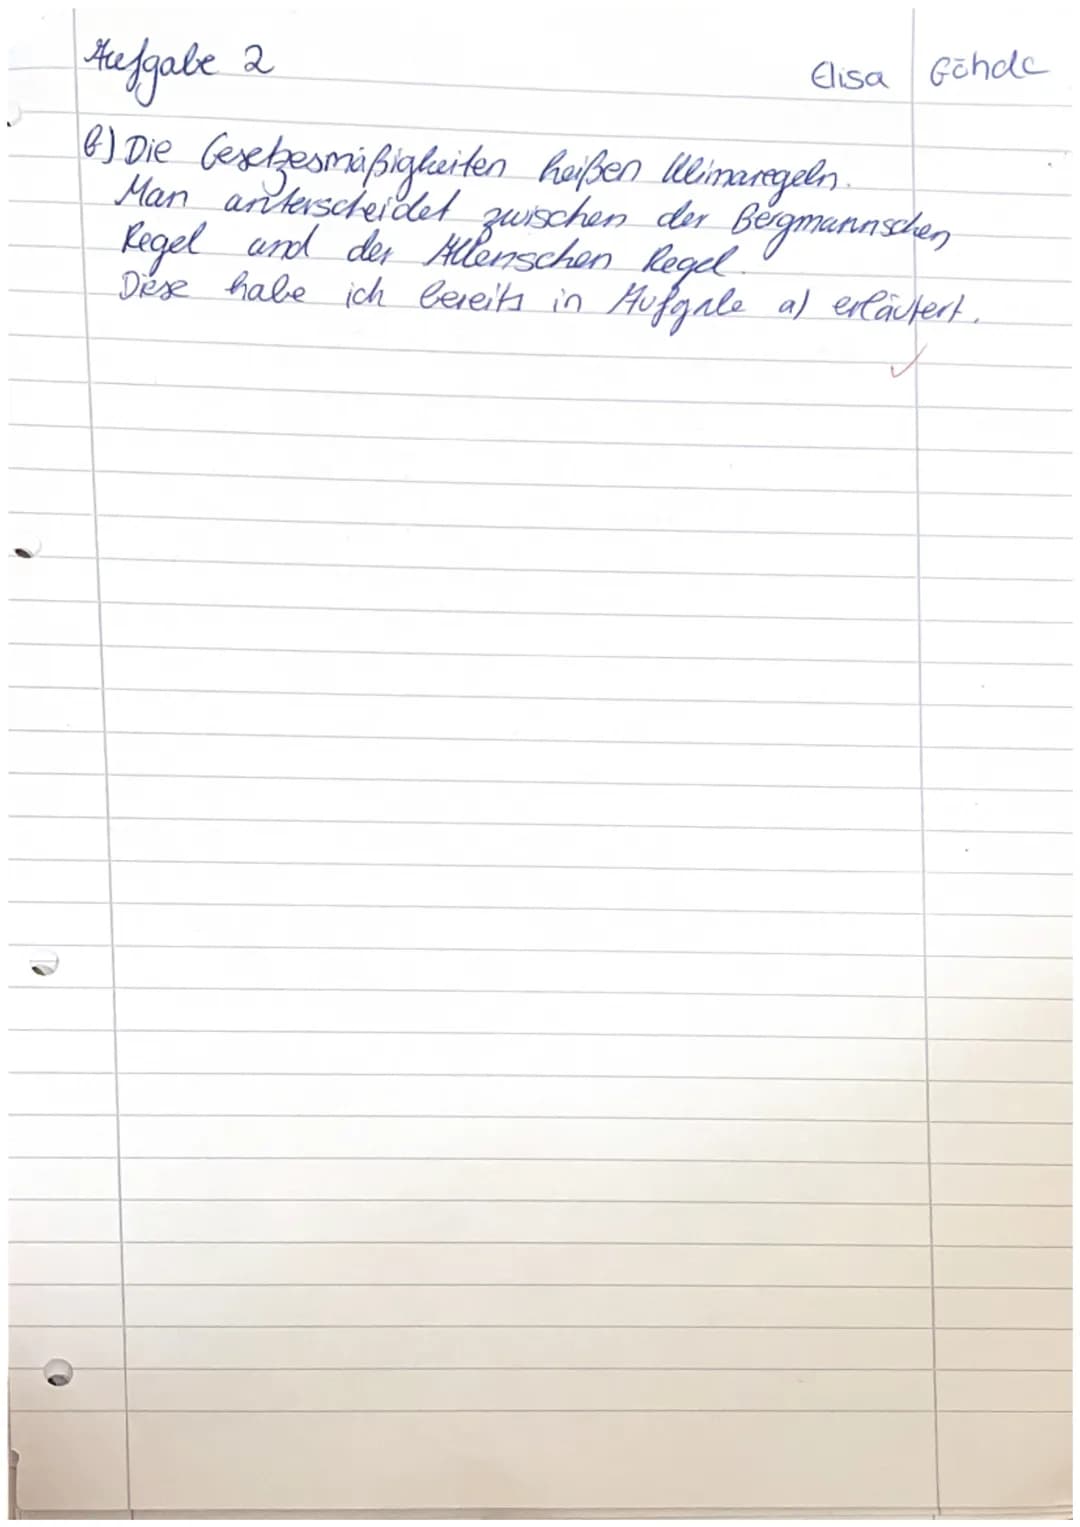 Aufgabe 2
Elisa Göhde
b) Die Gesetzesmäßigkeiten heißen Klimaregeln.
Man unterscheidet zwischen der Bergmannschen
Regel und der Allenschen Regel.
Diese habe ich bereits in Aufgabe a) erläutert.